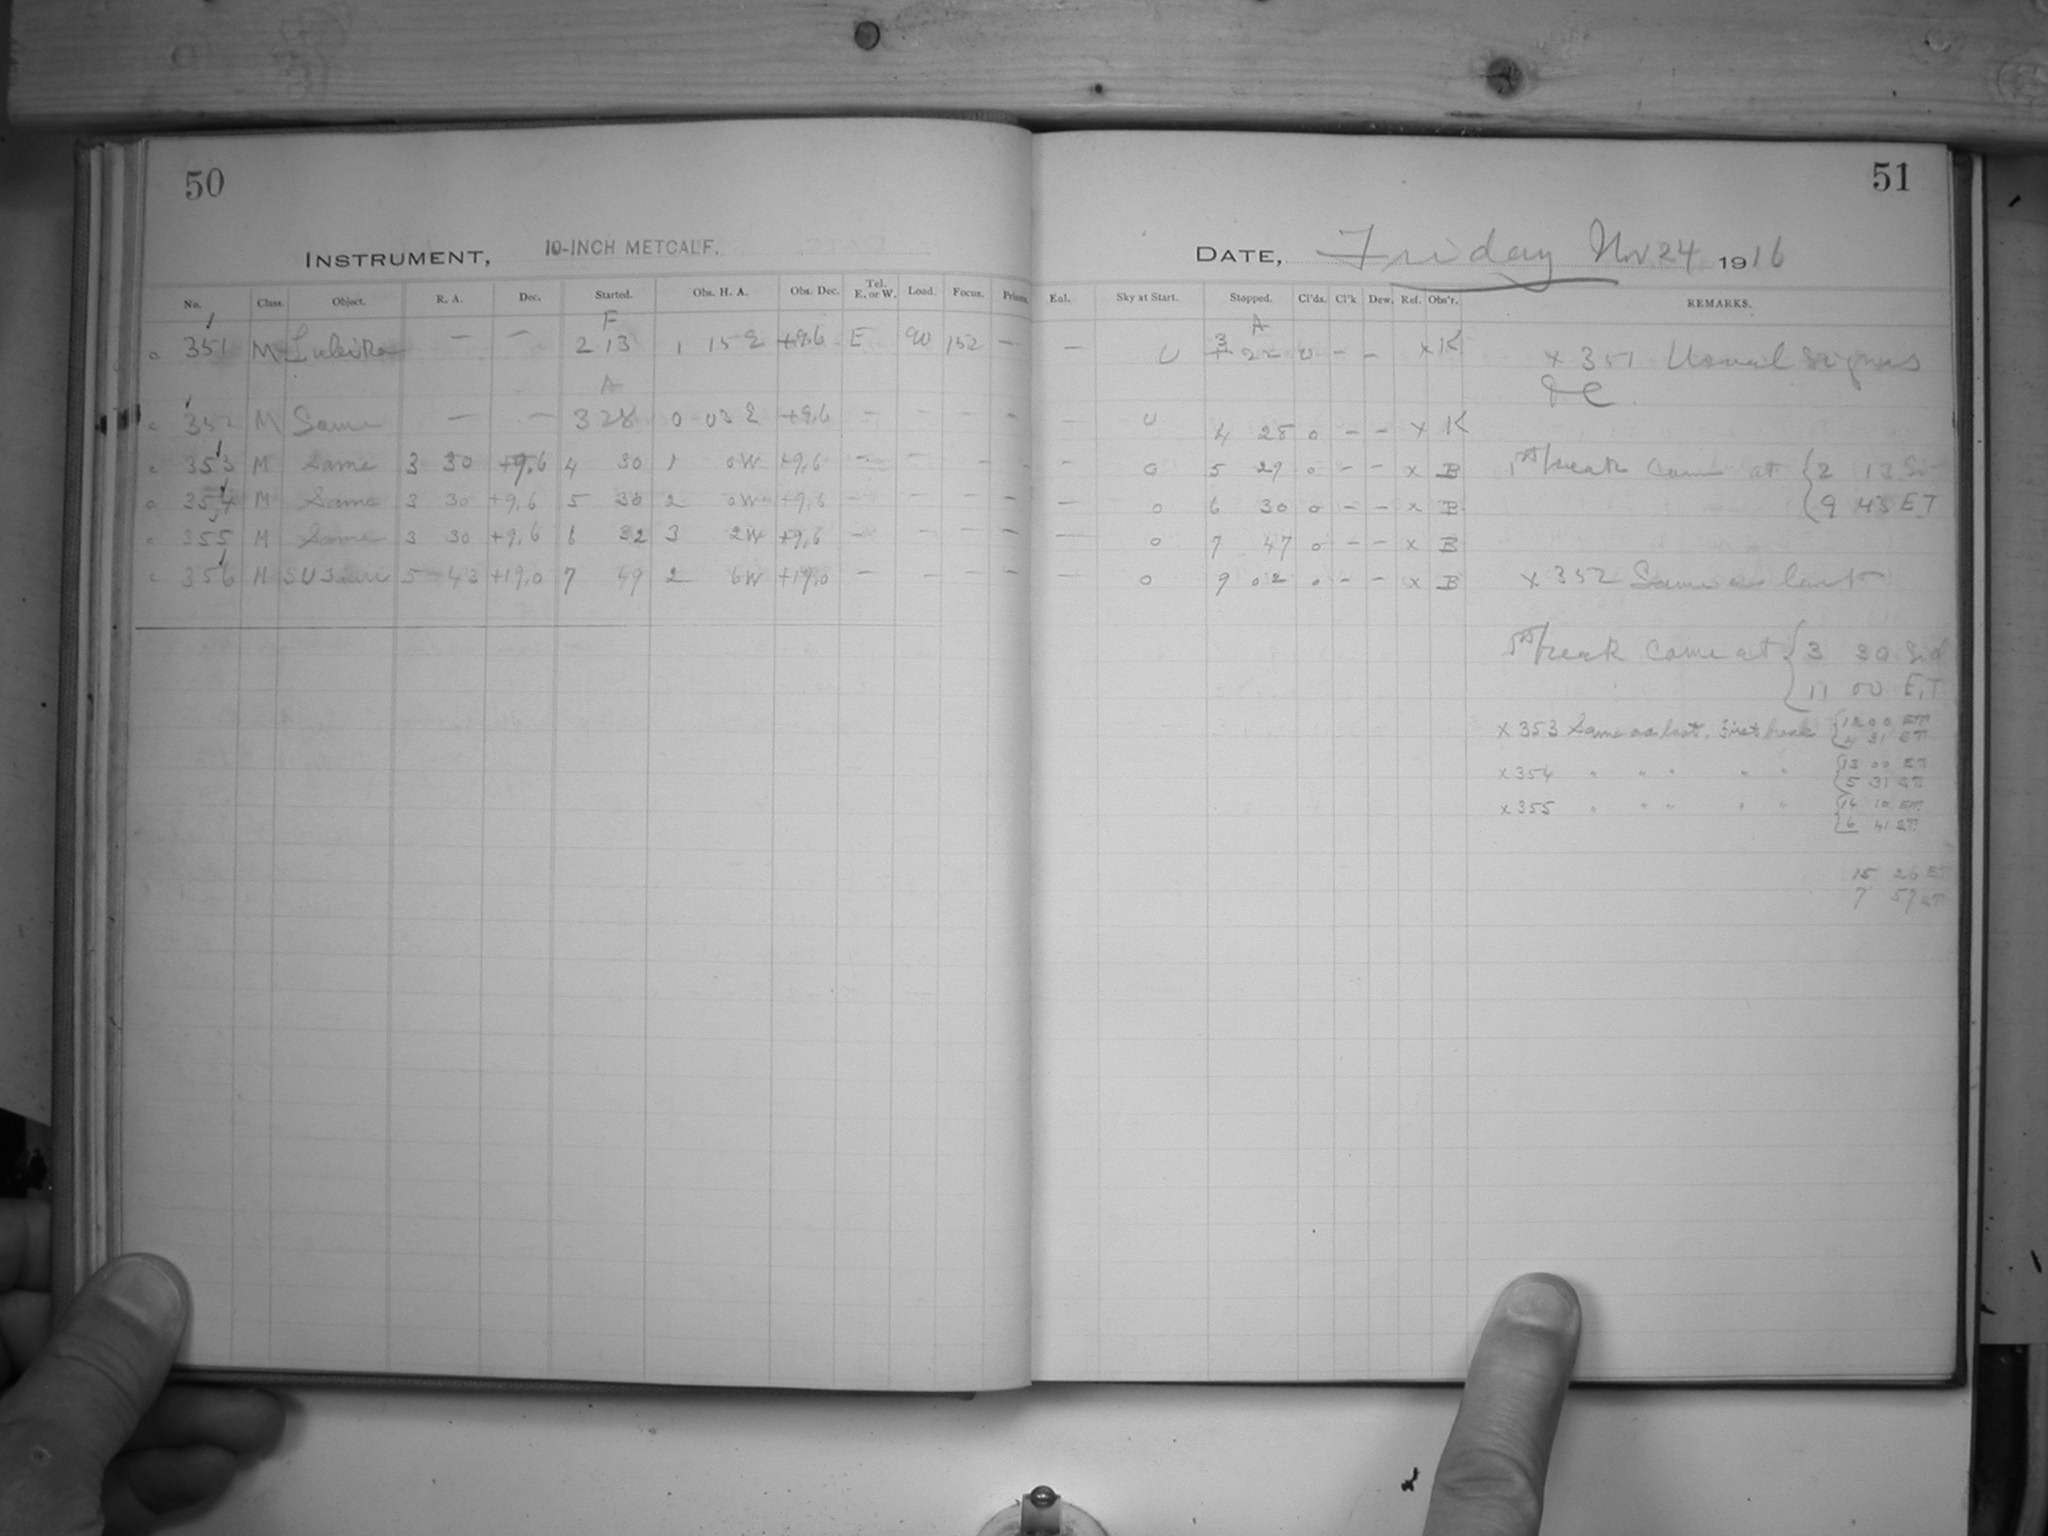 50
INSTRUMENT, 10-INCH METCALF.
No. Class. Object. R. A. Dec. Started. Obs. H. A. Obs. Dec. Tel. E. or W. Load. Focus. Prism.
F
351 M — — 2 13 1 15 E +9.6 E 90 152 —
A
352 M Same — — 3 28 0 03 E +9.6 — — — —
353 M Same 3 30 +9.6 4 30 1 0W +9.6 — — — —
354 M Same 3 30 +9.6 5 30 2 0W +9.6 — — — —
355 M Same 3 30 +9.6 6 32 3 2W +9.6 — — — —
356 M SU Tauri 5 43 +19.0 7 49 2 6W +19.0 — — — —
51
DATE, Friday Nov 24 1916
Enl. Sky at Start. Stopped. Cl'ds. Cl'k Dew. Ref. Obs'r. REMARKS.
A
— 0 3 22 0 — — x K
— 0 4 28 0 — — x K
— 0 5 29 0 — — x B
— 0 6 30 0 — — x B
— 0 7 47 0 — — x B
— 0 9 02 0 — — x B
x 351 Usual signs
&c.
1st break came at { 2 13 Sid
{ 9 43 E.T
x 352 Same as last
1st break came at { 3 30 Sid
{ 11 00 E.T.
x 353 Same as last, First break { 12 00 ET
{ 4 31 ST
x 354 " " " " " { 13 00 ET
{ 5 31 ST
x 355 " " " " " { 14 10 ET
{ 6 41 ST
15 26 ET
7 57 ST